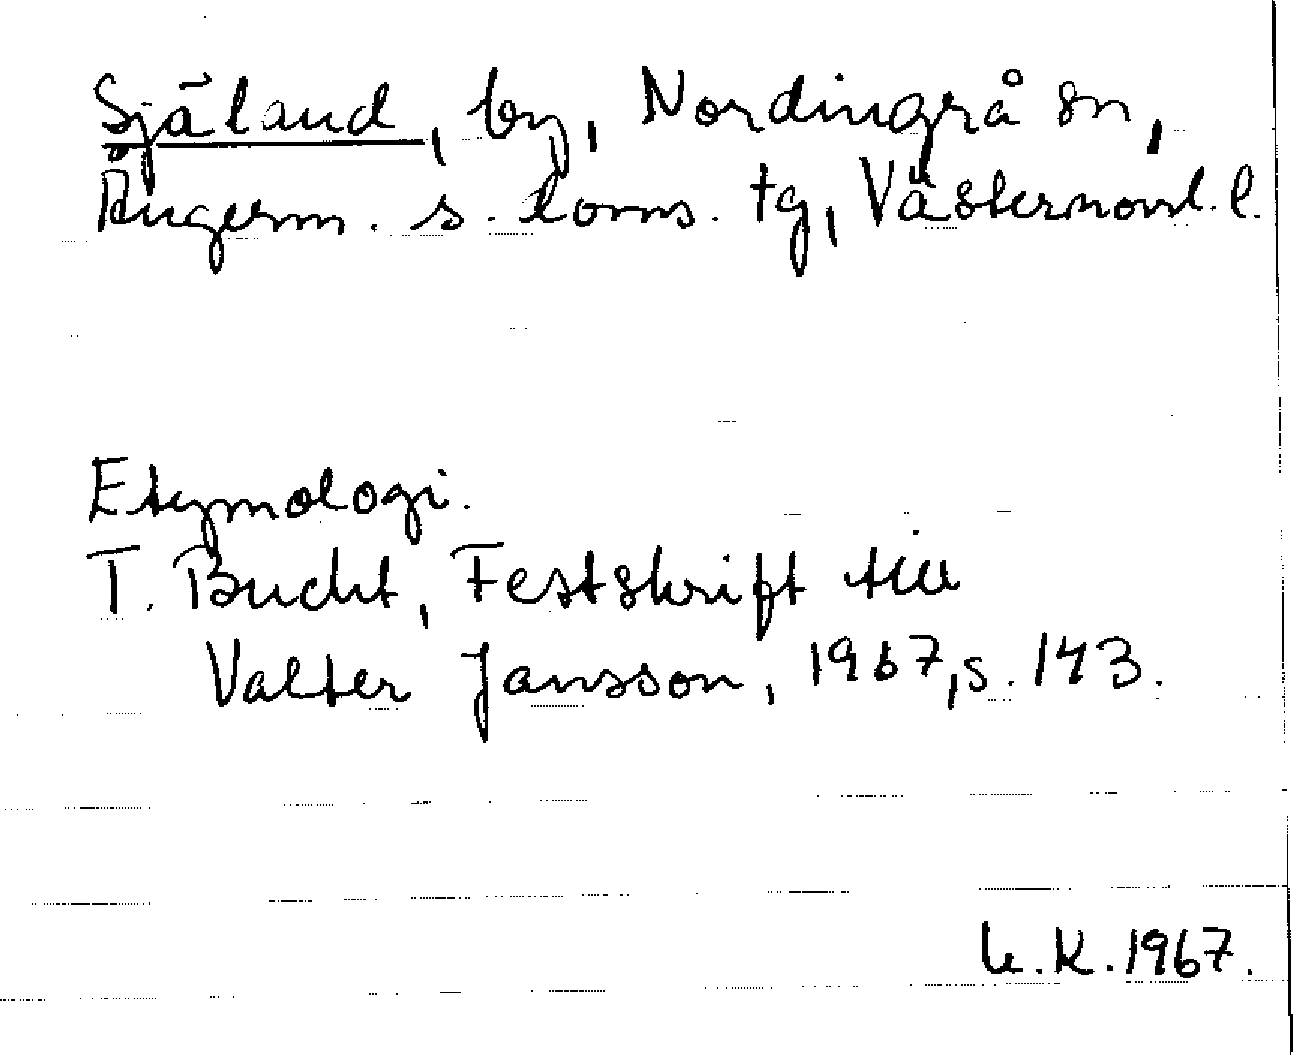 Själand, by, Nordingrå sn,
Ångerm. s. doms. tg, Västernorrl. l.
Etymologi.
T. Bucht, Festskrift till
Valter Jansson, 1967, s. 143.
U.K. 1967.